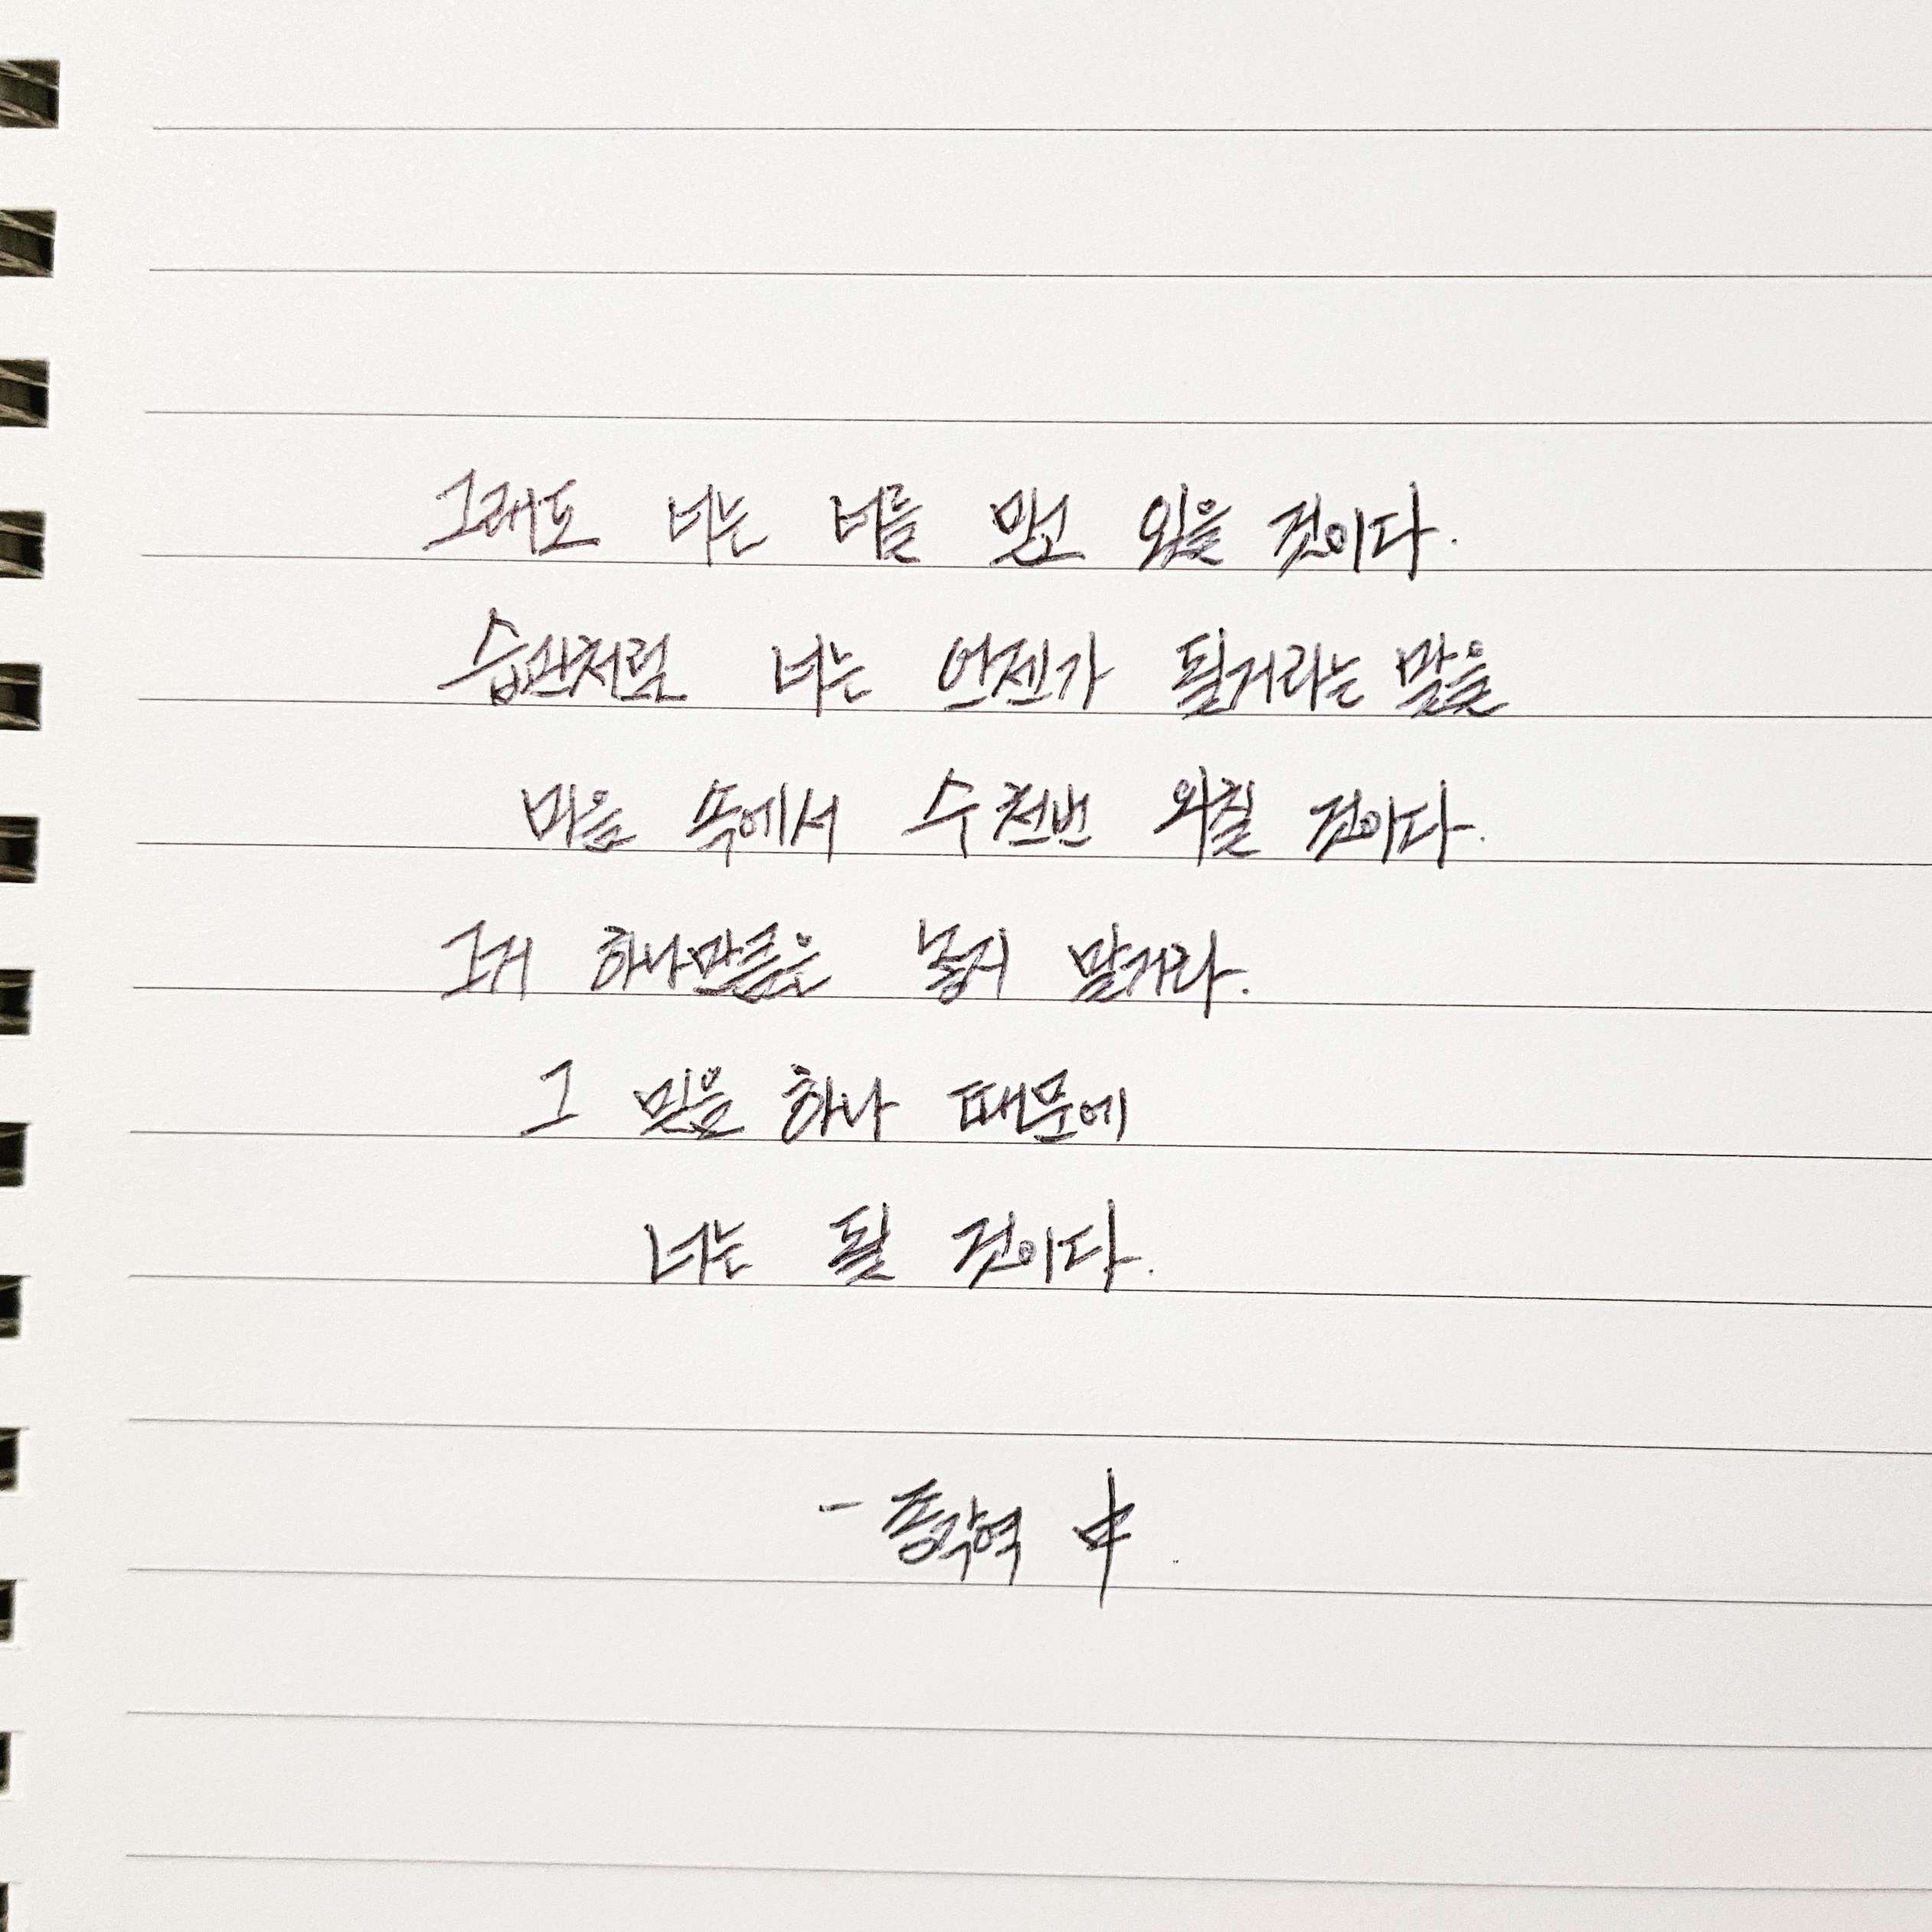 그래도 너는 너를 믿고 있을 것이다.
습관처럼 너는 언젠가 될거라는 말을
마음 속에서 수천번 외칠 것이다.
그거 하나만큼은 놓지 말거라.
그 믿음 하나 때문에
너는 될 것이다.
- 종각역 中.